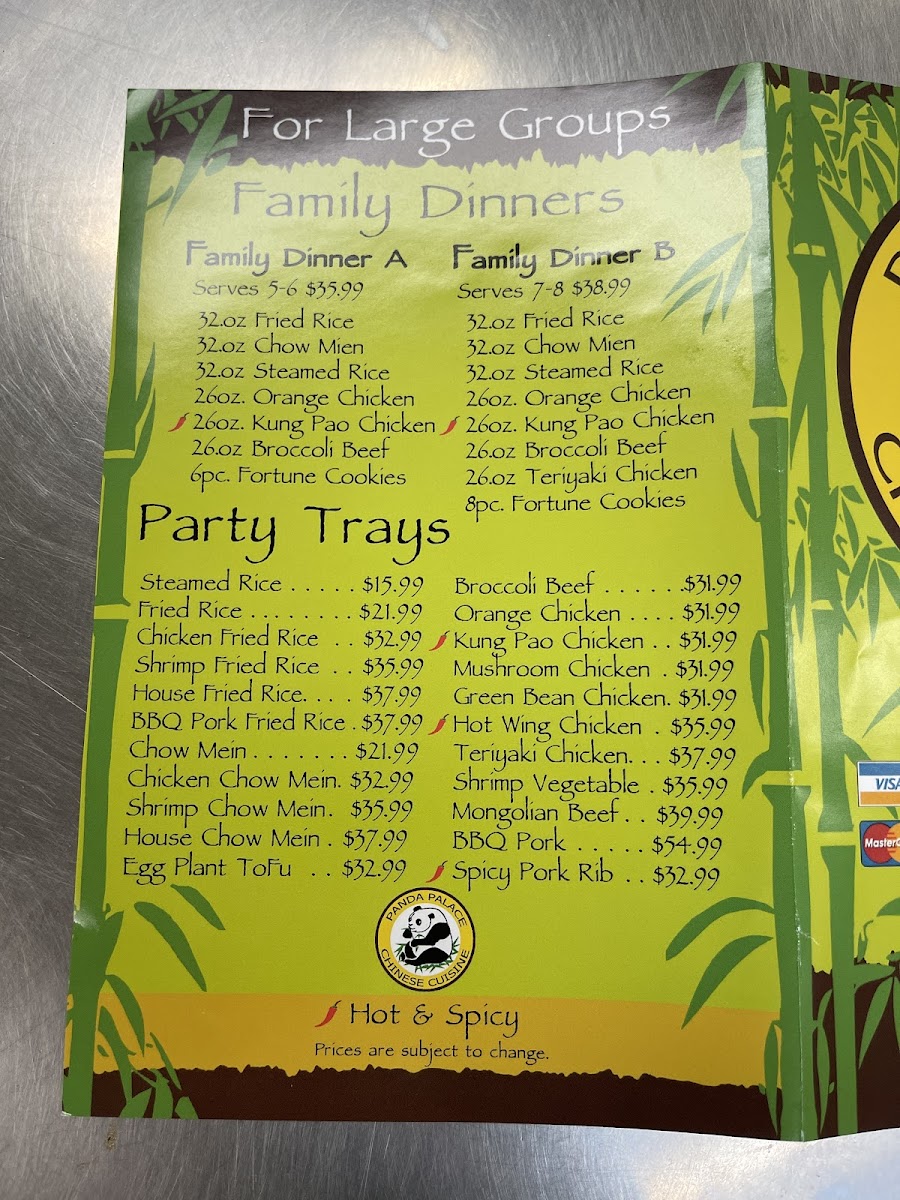 For Large Groups
Family Dinners
Family Dinner A
Serves 5-6 $35.99
32.oz Fried Rice
32.oz Chow Mien
32.oz Steamed Rice
26oz. Orange Chicken
26oz. Kung Pao Chicken
26.oz Broccoli Beef
6pc. Fortune Cookies
Family Dinner B
Serves 7-8 $38.99
32.oz Fried Rice
32.oz Chow Mien
32.oz Steamed Rice
26oz. Orange Chicken
26oz. Kung Pao Chicken
26.oz Broccoli Beef
26.oz Teriyaki Chicken
8pc. Fortune Cookies
Party Trays
Steamed Rice . . . . . $15.99
Fried Rice . . . . . . . $21.99
Chicken Fried Rice . . $32.99
Shrimp Fried Rice . . $35.99
House Fried Rice. . . . $37.99
BBQ Pork Fried Rice . $37.99
Chow Mein . . . . . . . $21.99
Chicken Chow Mein. $32.99
Shrimp Chow Mein. $35.99
House Chow Mein . $37.99
Egg Plant ToFu . . $32.99
Broccoli Beef . . . . . .$31.99
Orange Chicken . . . . $31.99
Kung Pao Chicken . . $31.99
Mushroom Chicken . $31.99
Green Bean Chicken. $31.99
Hot Wing Chicken . $35.99
Teriyaki Chicken. . . $37.99
Shrimp Vegetable . $35.99
Mongolian Beef . . $39.99
BBQ Pork . . . . . . $54.99
Spicy Pork Rib . . $32.99
PANDA PALACE
CHINESE CUISINE
Hot & Spicy
Prices are subject to change.
VISA